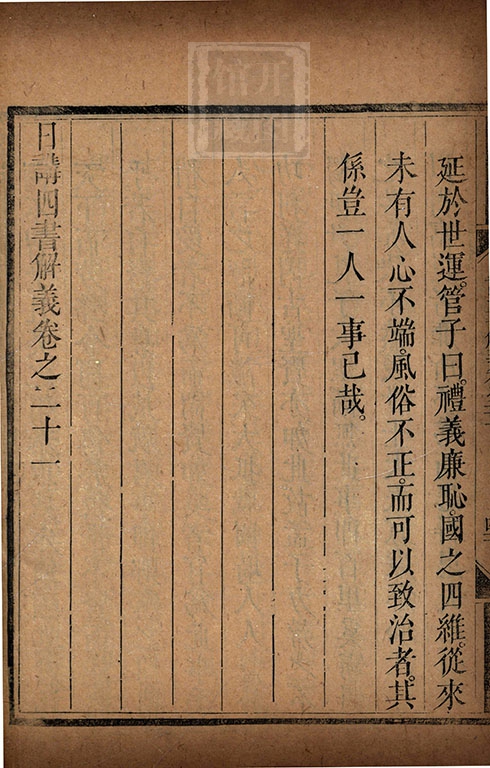 延於世運。管子曰。禮義廉恥。國之四維。從來
未有人心不端。風俗不正。而可以致治者。其
係豈一人一事已哉。
日講四書解義卷之二十一